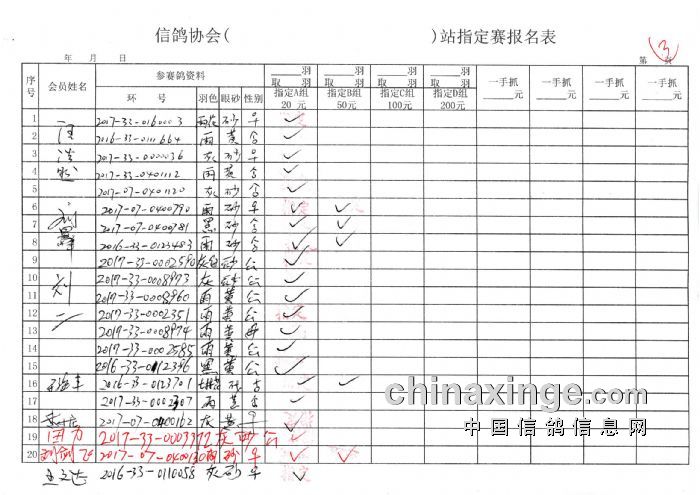 信鸽协会( )站指定赛报名表
年 月 日 第 3 页
序号 会员姓名 参赛鸽资料 ___羽取___羽 ___羽取___羽 ___羽取___羽 ___羽取___羽 一手抓___元 一手抓___元 一手抓___元 一手抓___元
环 号 羽色 眼砂 性别 指定A组20 元 指定B组50 元 指定C组100元 指定D组200元
1 2017-33-0160003 砂 ✓
2 2016-33-0111664 雨 黄 ✓
3 2017-33-0000036 灰 砂 ✓
4 2017-33-0401112 雨 黄 ✓
5 2017-07-0401120 灰 砂 ✓
6 2017-07-0400790 雨 砂 ✓ ✓
7 2017-07-0400781 黑 砂 ✓ ✓
8 2016-33-0123483 雨 砂 ✓ ✓
9 2017-33-0002590 灰 砂 公 ✓
10 刘 2017-33-0008973 灰 砂 公 ✓
11 2017-33-0008960 雨 黄 公 ✓
12 2017-33-0002351 雨 黄 公 ✓
13 2017-33-0008974 雨 黄 ✓
14 2017-33-0002585 雨 黄 公 ✓
15 2016-33-0112396 黑 黄 公 ✓
16 2016-33-0123701 砂 ✓ ✓
17 2017-33-0002307 雨 黄 ✓
18 2017-07-0400162 灰 黄 ✓
19 田力 2017-33-0009372 灰 砂 公 ✓
20 2017-07-0400130 雨 砂 ✓ ✓
2016-33-0110058 灰 砂 ✓
chinaxinge.com
中国信鸽信息网